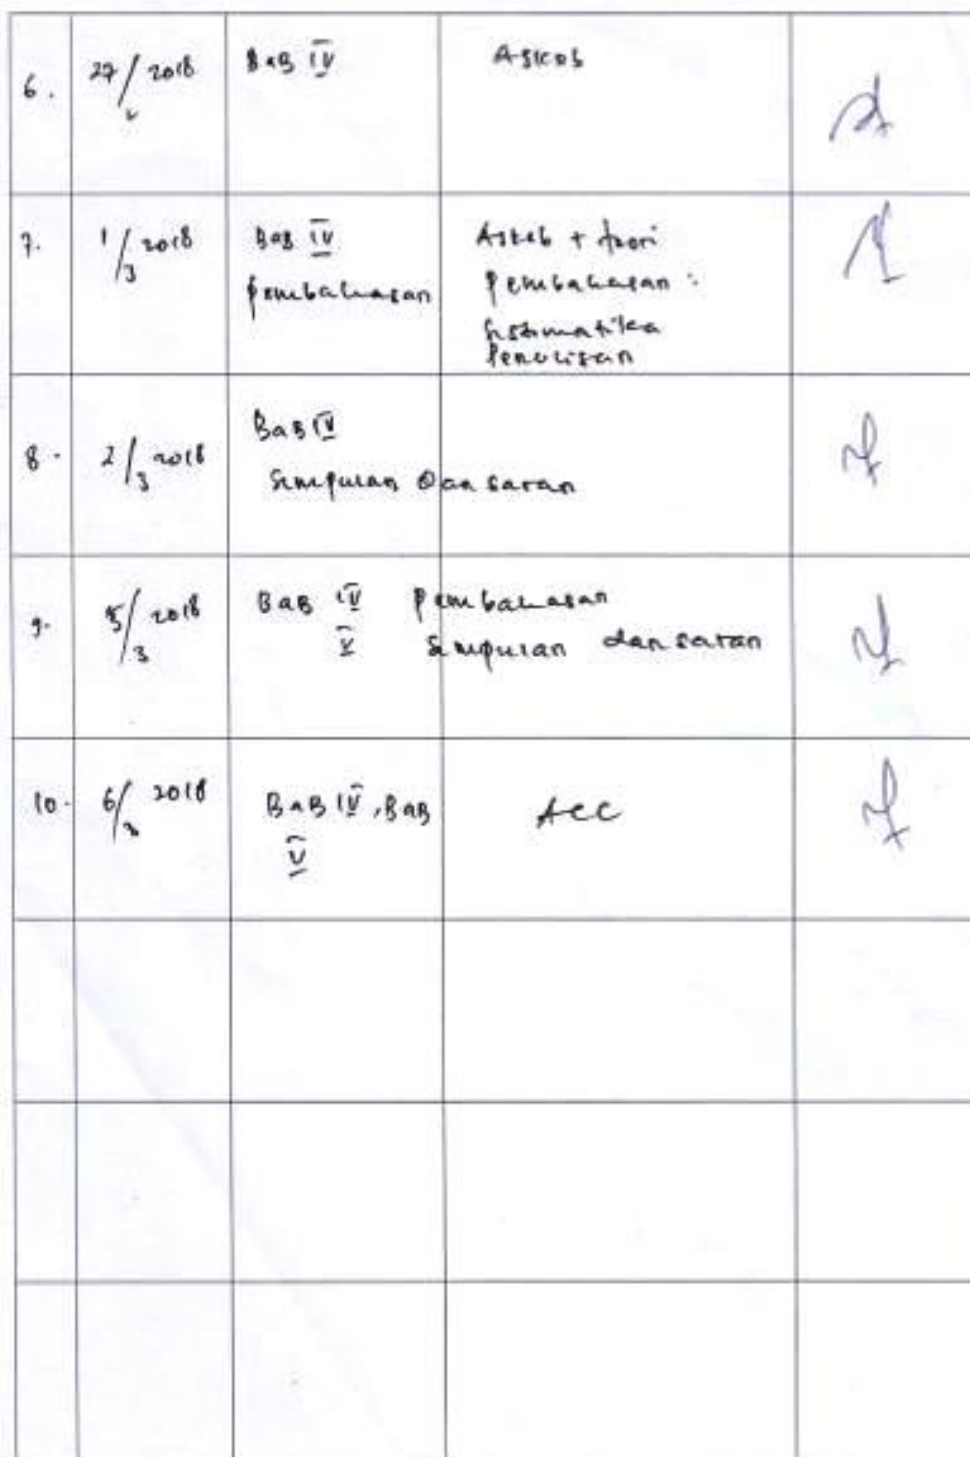 6. 27/2 2018 BAB IV Askeb
7. 1/3 2018 BAB IV Askeb + teori
pembahasan pembahasan :
sistematika
penulisan
8. 2/3 2018 BAB IV
simpulan dan saran
9. 5/3 2018 BAB IV pembahasan
V simpulan dan saran
10. 6/3 2018 BAB IV, BAB ACC
V